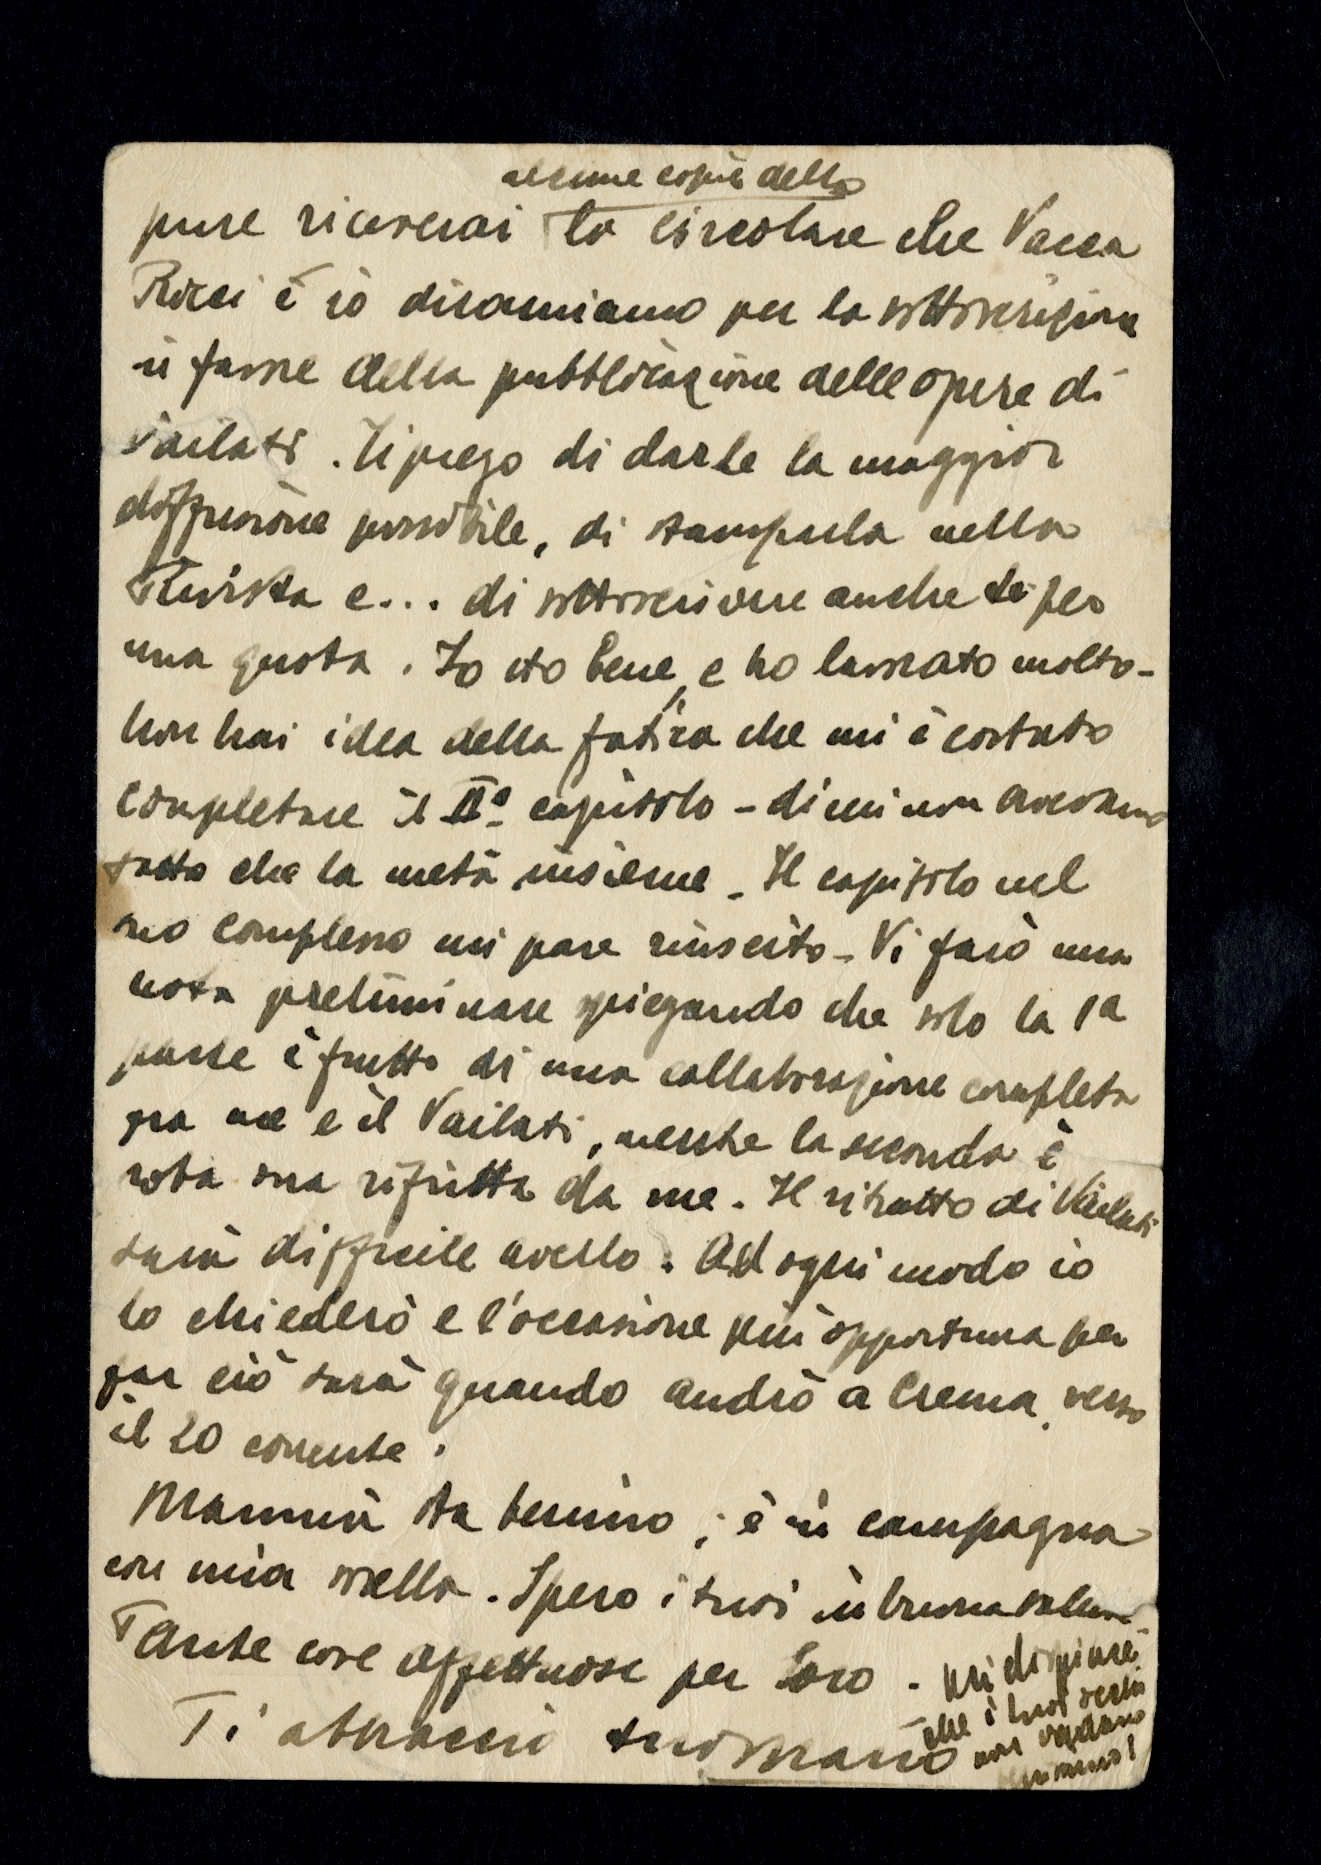 alcune copie della
pure riceverai la circolare che Vacca
Ricci e io diramiamo per la sottoscrizione
in favore della pubblicazione delle opere di
Vailati. Ti prego di darle la maggior
diffusione possibile, di stamparla nella
Rivista e... di sottoscrivere anche te per
una quota. Io sto bene, e ho lavorato molto -
Non hai idea della fatica che mi è costato
completare il IIº capitolo - di cui non avevamo
fatto che la metà insieme - Il capitolo nel
suo complesso mi pare riuscito - Vi farò una
nota preliminare spiegando che solo la 1a
parte è frutto di una collaborazione completa
fra me e il Vailati, mentre la seconda è
roba sua rifritta da me. Il ritratto di Vailati
sarà difficile averlo. Ad ogni modo io
lo chiederò e l'occasione più opportuna per
far ciò sarà quando andrò a Crema, verso
il 20 corrente.
Mammà sta benino; è in campagna
con mia sorella. Spero i tuoi in buona salute
Tante cose affettuose per loro. Mi dispiace
che i tuoi
non vedano
Ti abbraccio tuo Mario